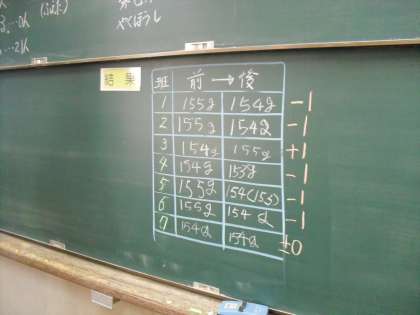 (ふぶた)
やくぼうし
結果
班 前 → 後
1 155g 154g -1
2 155g 154g -1
3 154g 155g +1
4 154g 153g -1
5 155g 154(153) -1
6 155g 154g -1
7 154g 154g ±0